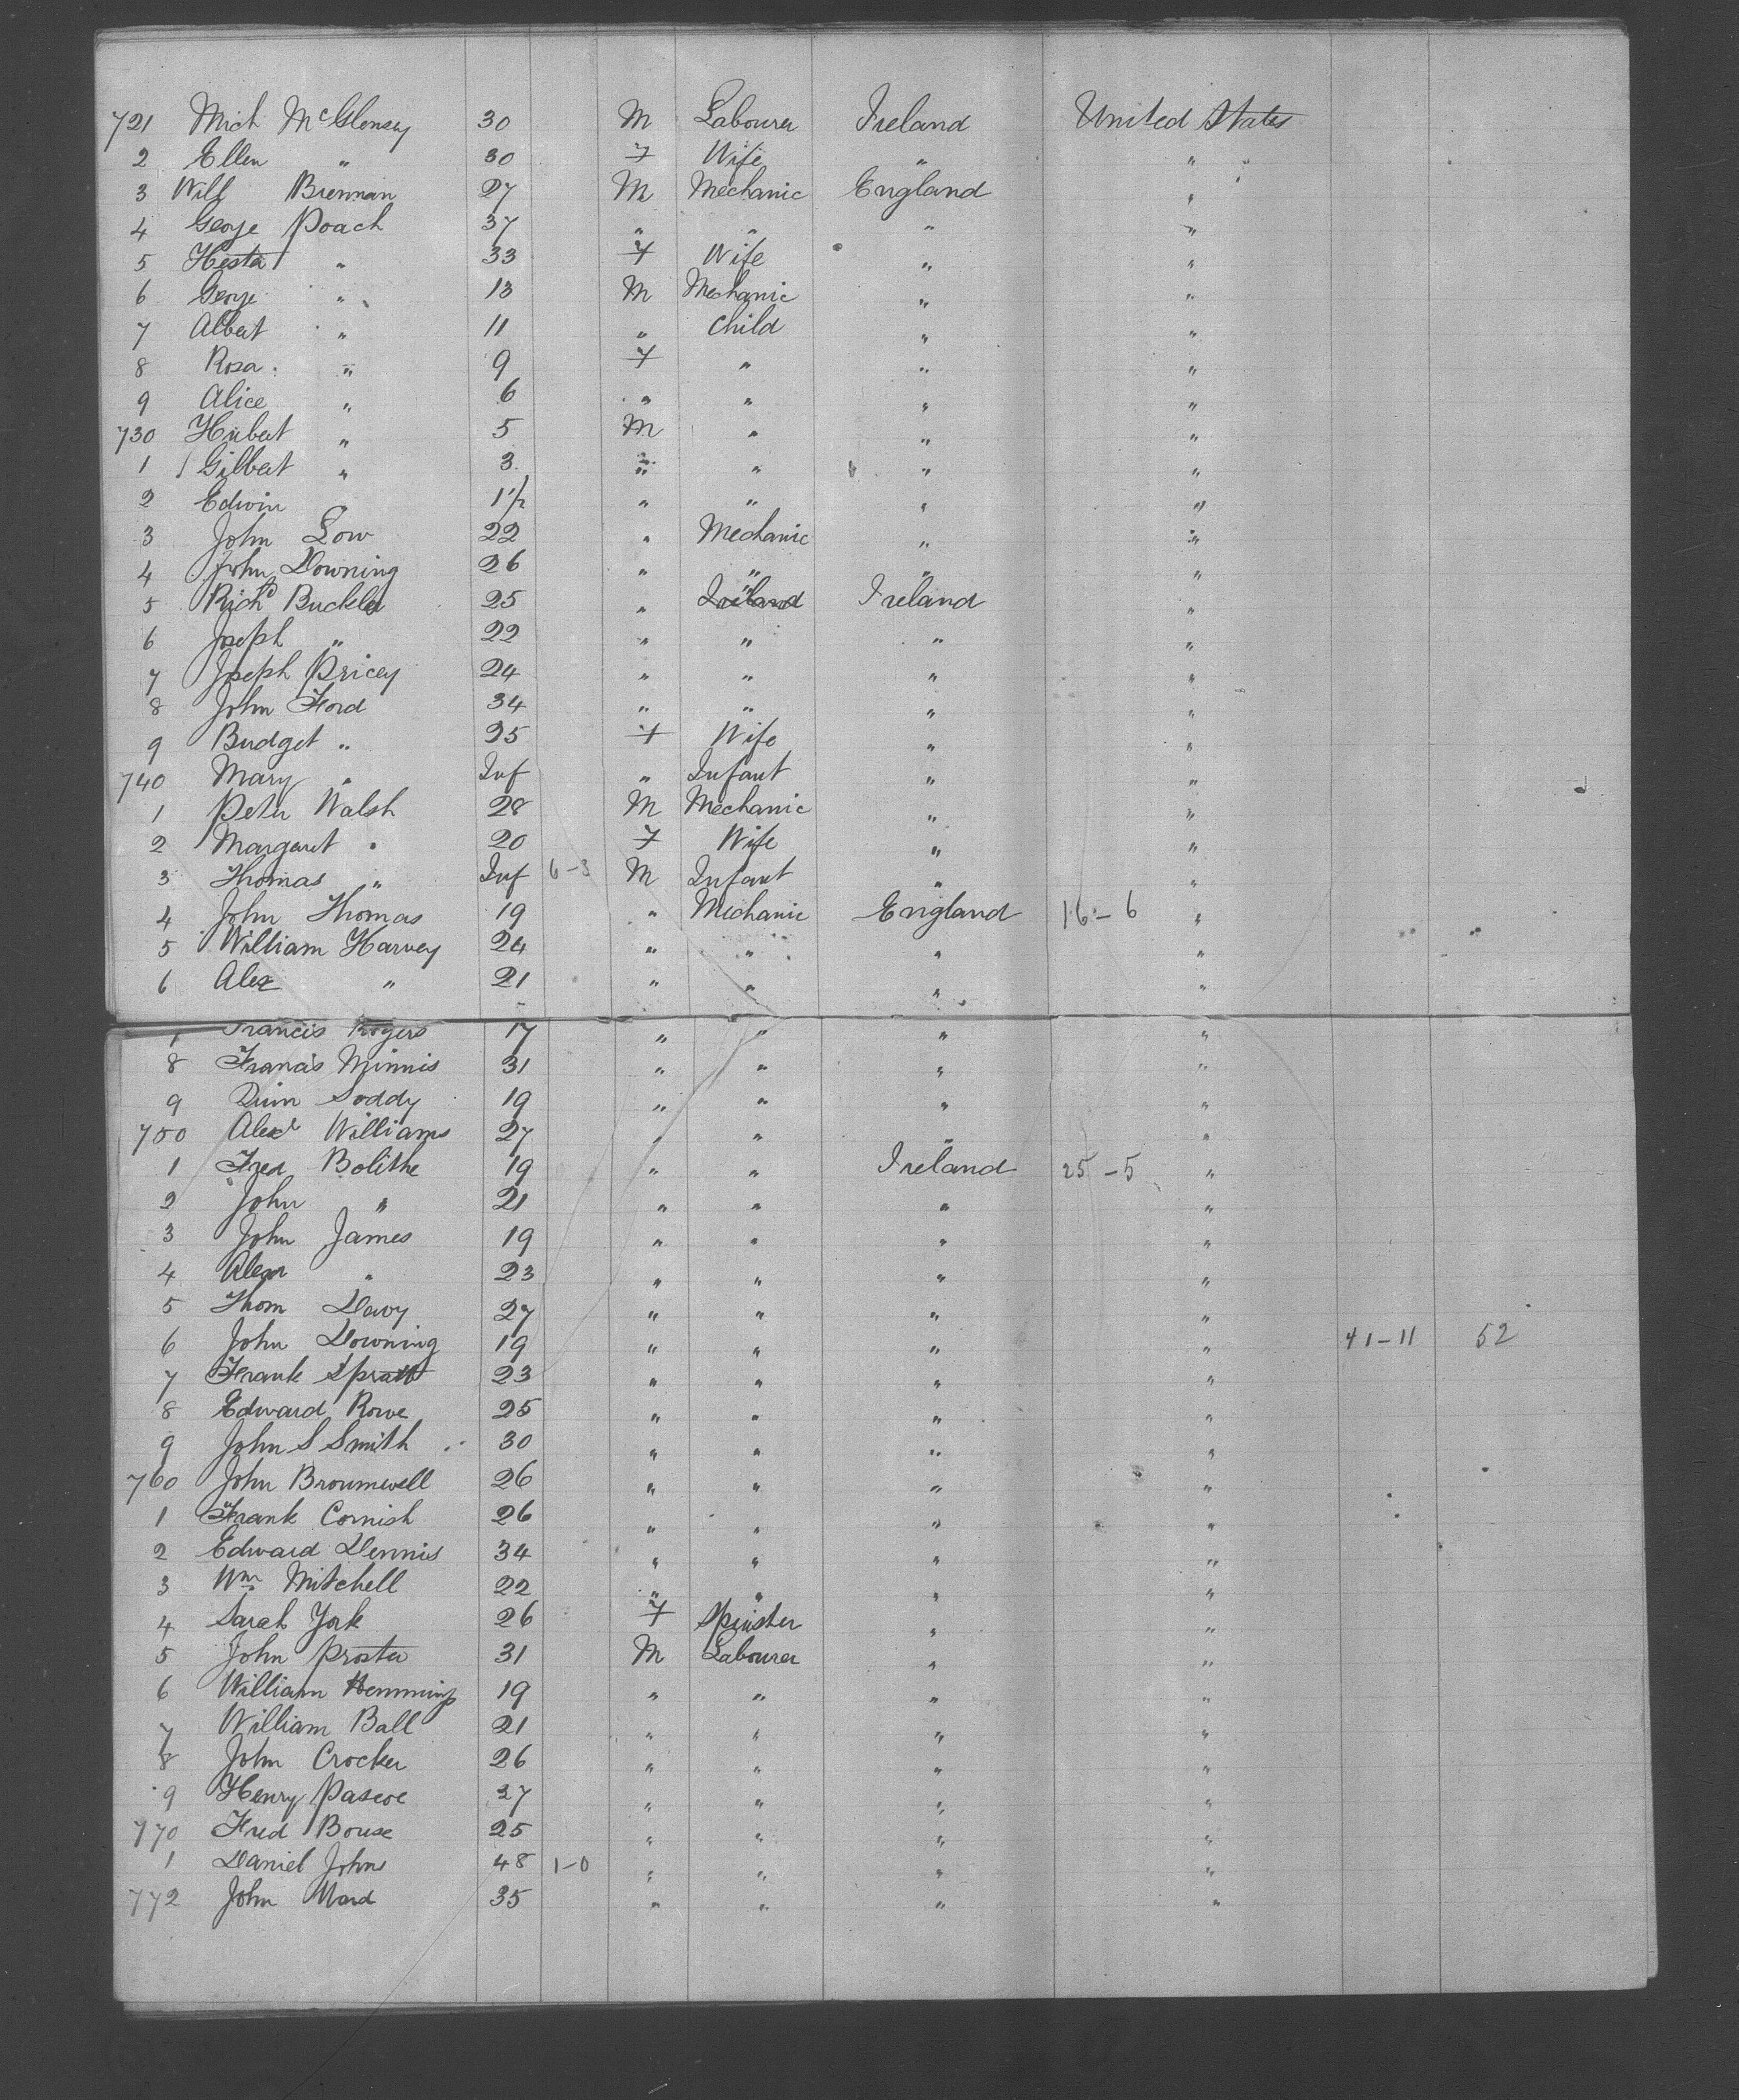 721 Mich McGlensey 30 M Labourer Ireland United States
2 Ellen " 30 F Wife " "
3 Will Brennan 27 M Mechanic England "
4 George Poach 37 " " " "
5 Hesta " 33 F Wife " "
6 George " 13 M Mechanic " "
7 Albert " 11 " Child " "
8 Rosa " 9 F " " "
9 Alice " 6 " " " "
730 Hubert " 5 M " " "
1 Gilbert " 3 " " " "
2 Edwin " 1 1/2 " " " "
3 John Low 22 " Mechanic " "
4 John Downing 26 " " " "
5 Richd Buckler 25 " Ireland Ireland "
6 Joseph " 22 " " " "
7 Joseph Pricey 24 " " " "
8 John Ford 34 " " " "
9 Bridget " 25 F Wife " "
740 Mary " Inf " Infant " "
1 Peter Walsh 28 M Mechanic " "
2 Margaret " 20 F Wife " "
3 Thomas " Inf 6-3 M Infant " "
4 John Thomas 19 " Mechanic England 16-6 "
5 William Harvey 24 " " " "
6 Alex " 21 " " " "
7 Francis Rogers 17 " " " "
8 Francis Minnis 31 " " " "
9 Soddy 19 " " " "
750 Alexr Williams 27 " " " "
1 Fred Bolithe 19 " " Ireland 25-5 "
2 John " 21 " " " "
3 John James 19 " " " "
4 Alexr " 23 " " " "
5 Thom Davy 27 " " " "
6 John Downing 19 " " " " 41-11 52
7 Frank Spratt 23 " " " "
8 Edward Rowe 25 " " " "
9 John S Smith 30 " " " "
760 John Broumwell 26 " " " "
1 Frank Cornish 26 " " " "
2 Edward Dennis 34 " " " "
3 Wm Mitchell 22 " " " "
4 Sarah York 26 F Spinster " "
5 John Proster 31 M Labourer " "
6 William Hemmings 19 " " " "
7 William Ball 21 " " " "
8 John Crocker 26 " " " "
9 Henry Pascoe 37 " " " "
770 Fred Bouse 25 " " " "
1 Daniel Johns 48 1-0 " " " "
772 John Ward 35 " " " "